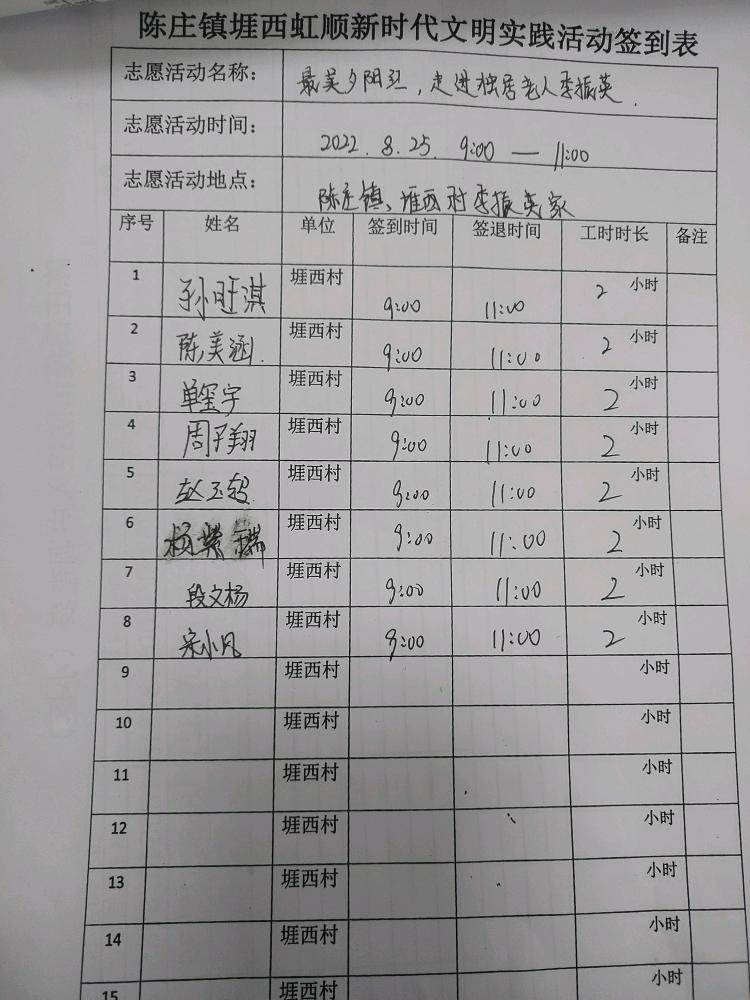 陈庄镇堐西虹顺新时代文明实践活动签到表
志愿活动名称： 最美夕阳红，走进独居老人李振英.
志愿活动时间： 2022.8.25. 9:00 — 11:00
志愿活动地点： 陈庄镇、堐西村李振英家
序号 姓名 单位 签到时间 签退时间 工时时长 备注
1 孙旺淇 堐西村 9:00 11:00 2 小时
2 陈美涵. 堐西村 9:00 11:00 2 小时
3 单玺宇 堐西村 9:00 11:00 2 小时
4 周子翔 堐西村 9:00 11:00 2 小时
5 赵玉 堐西村 9:00 11:00 2 小时
6 杨紫 堐西村 9:00 11:00 2 小时
7 段文杨 堐西村 9:00 11:00 2 小时
8 宋小凡 堐西村 9:00 11:00 2 小时
9 堐西村 小时
10 堐西村 小时
11 堐西村 小时
12 堐西村 小时
13 堐西村 小时
14 堐西村 小时
15 堐西村 小时